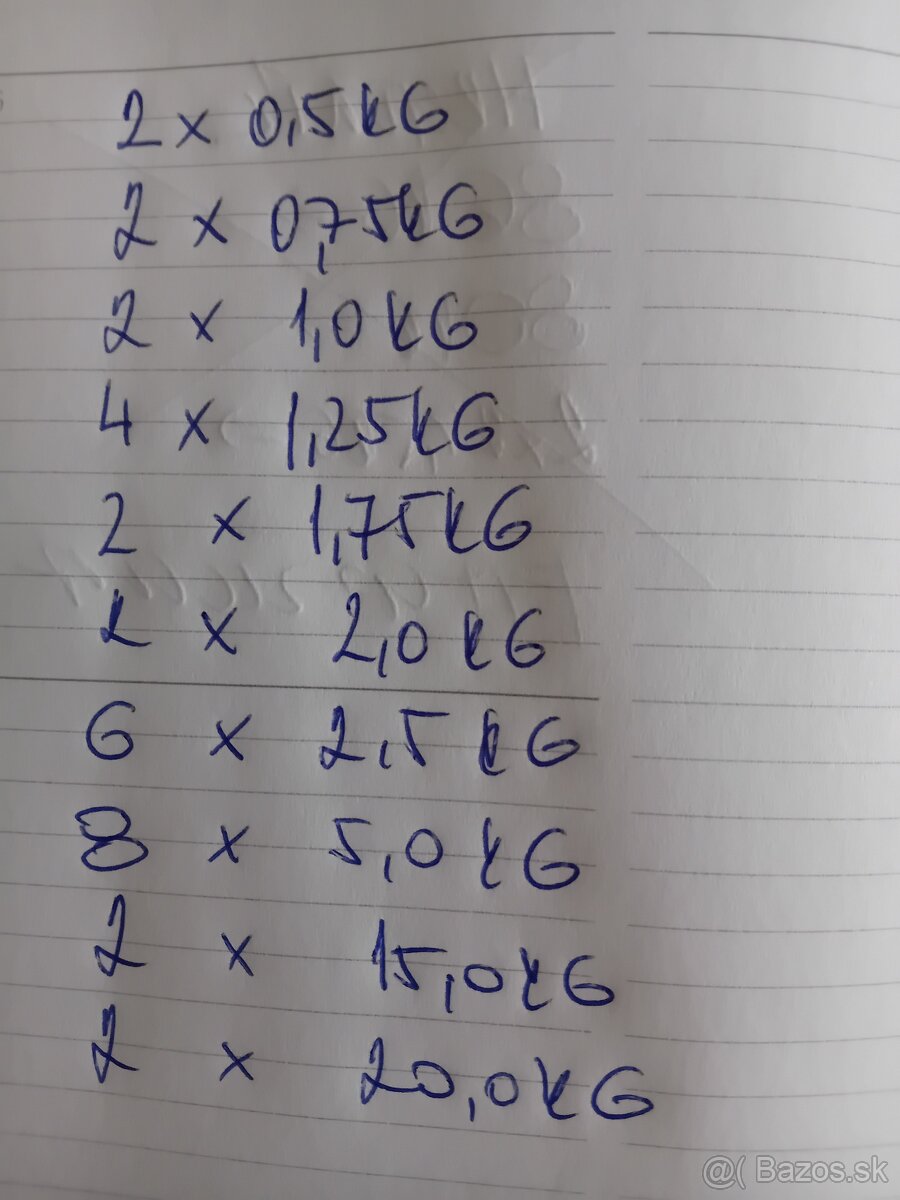 2 x 0,5 kG
2 x 0,75 kG
2 x 1,0 kG
4 x 1,25 kG
2 x 1,75 kG
2 x 2,0 kG
6 x 2,5 kG
8 x 5,0 kG
2 x 15,0 kG
2 x 20,0 kG
@( Bazos.sk